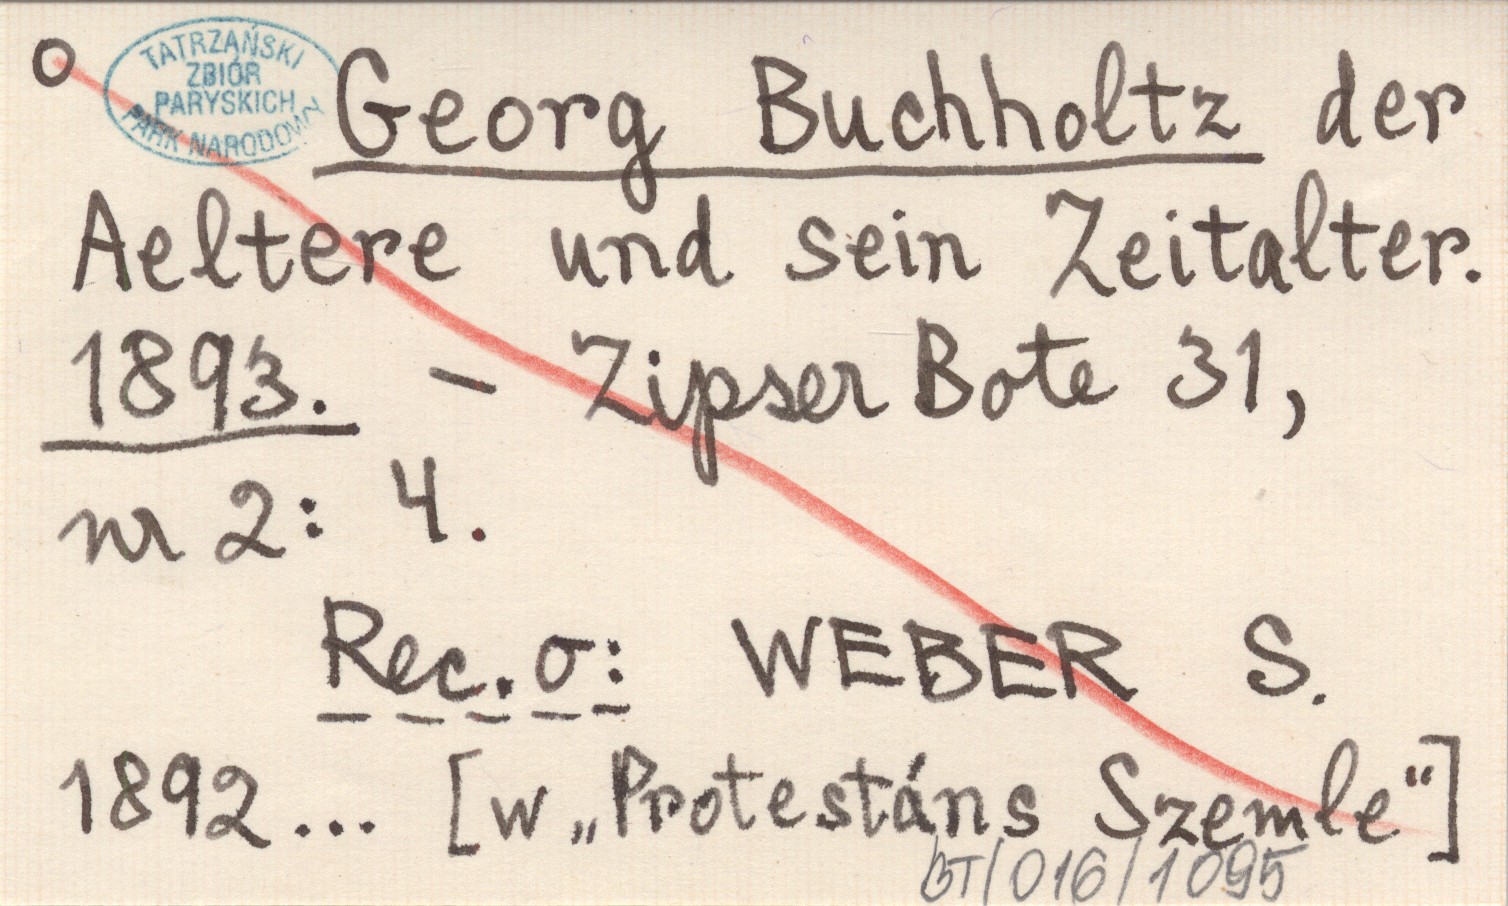 O
TATRZAŃSKI
ZBIÓR
PARYSKICH
PARK NARODOWY
Georg Buchholtz der
Aeltere und sein Zeitalter.
1893. – Zipser Bote 31,
nr 2: 4.
Rec. o: WEBER S.
1892... [w „Protestáns Szemle“]
BT/016/1095